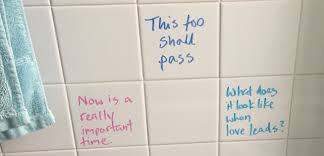 This too
shall
pass
Now is a
really
important
time.
What does
it look like
when
love leads?